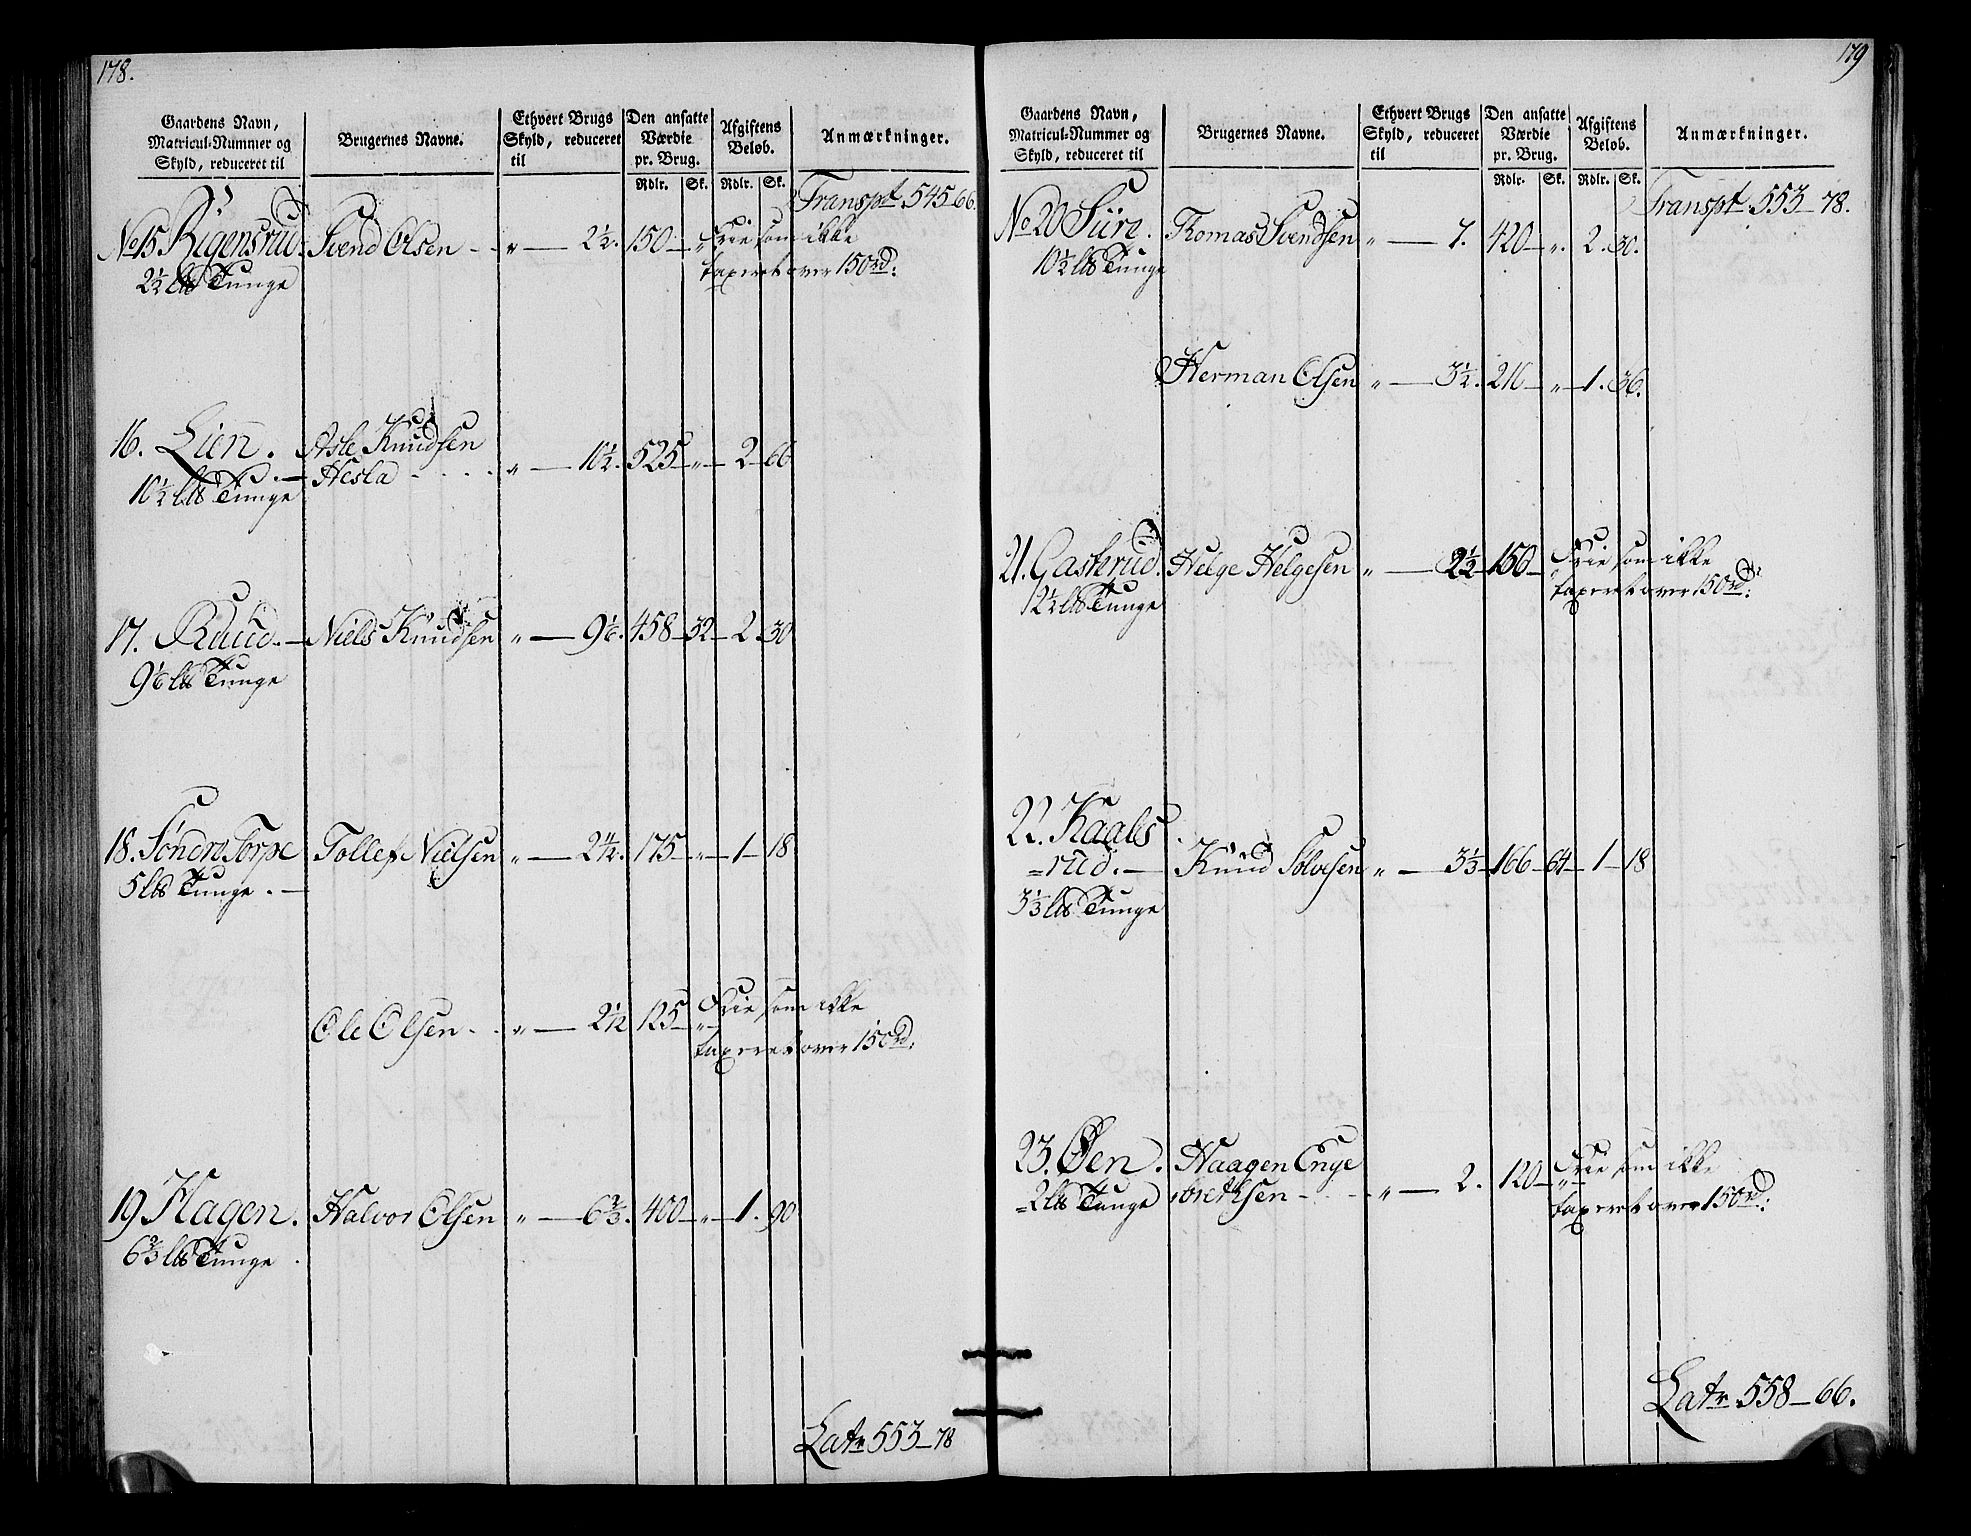 178.
Gaardens Navn,
Matricul-Nummer og
Skyld, reduceret til
Brugernes Navne.
Ethvert Brugs
Skyld, reduceret
til
Den ansatte
Værdie
pr. Brug.
Afgiftens
Beløb.
Anmærkninger.
Rdlr. Sk. Rdlr. Sk.
Transpt 545-66.
No 15. Rigensrud. Svend Olsen - - „ — 2½. 150 — „ Frie som ikke
2½ lb Tunge taxeret over 150rd:
16. Lien. Asle Knudsen
Hesla - - - - „ — 10½. 525 — „ — 2 — 66
10½ lb Tunge
17. Ruud. — Niels Knudsen „ — 9⅙. 458 — 32 — 2 — 30
9⅙ lb Tunge
18. Søndre Torpe Tollef Nielsen „ — 2 11/12. 175 — „ — 1 — 18
5 lb Tunge. —
Ole Olsen - - „ — 2 1/12 125 — „ Frie som ikke
taxeret over 150rd:
19 Hagen. Halvor Olsen „ — 6⅔. 400 — „ — 1. 90
6⅔ lb Tunge
Latr 553-78
179
Gaardens Navn,
Matricul-Nummer og
Skyld, reduceret til
Brugernes Navne.
Ethvert Brugs
Skyld, reduceret
til
Den ansatte
Værdie
pr. Brug.
Afgiftens
Beløb.
Anmærkninger.
Rdlr. Sk. Rdlr. Sk.
Transpt 553-78.
No 20 Sire. Thomas Svendsen „ — 7. 420 — „. 2. 30.
10½ lb Tunge
Herman Olsen „ — 3½. 210 — „ — 1. 36.
21. Gasterud. Helge Helgesen „ — 2½ — 150 — „ Frie som ikke
2½ lb Tunge taxeret over 150rd:
22. Kaals
=rud. — Knud Solvesen „ — 3⅓ — 166 — 64 — 1 — 18
3⅓ lb Tunge
23. Øen. Haagen Enge
brethsen - - - „ — 2. 120 — „ Frie som ikke
=2 lb Tunge taxeret over 150rd:
Latr 558-66.